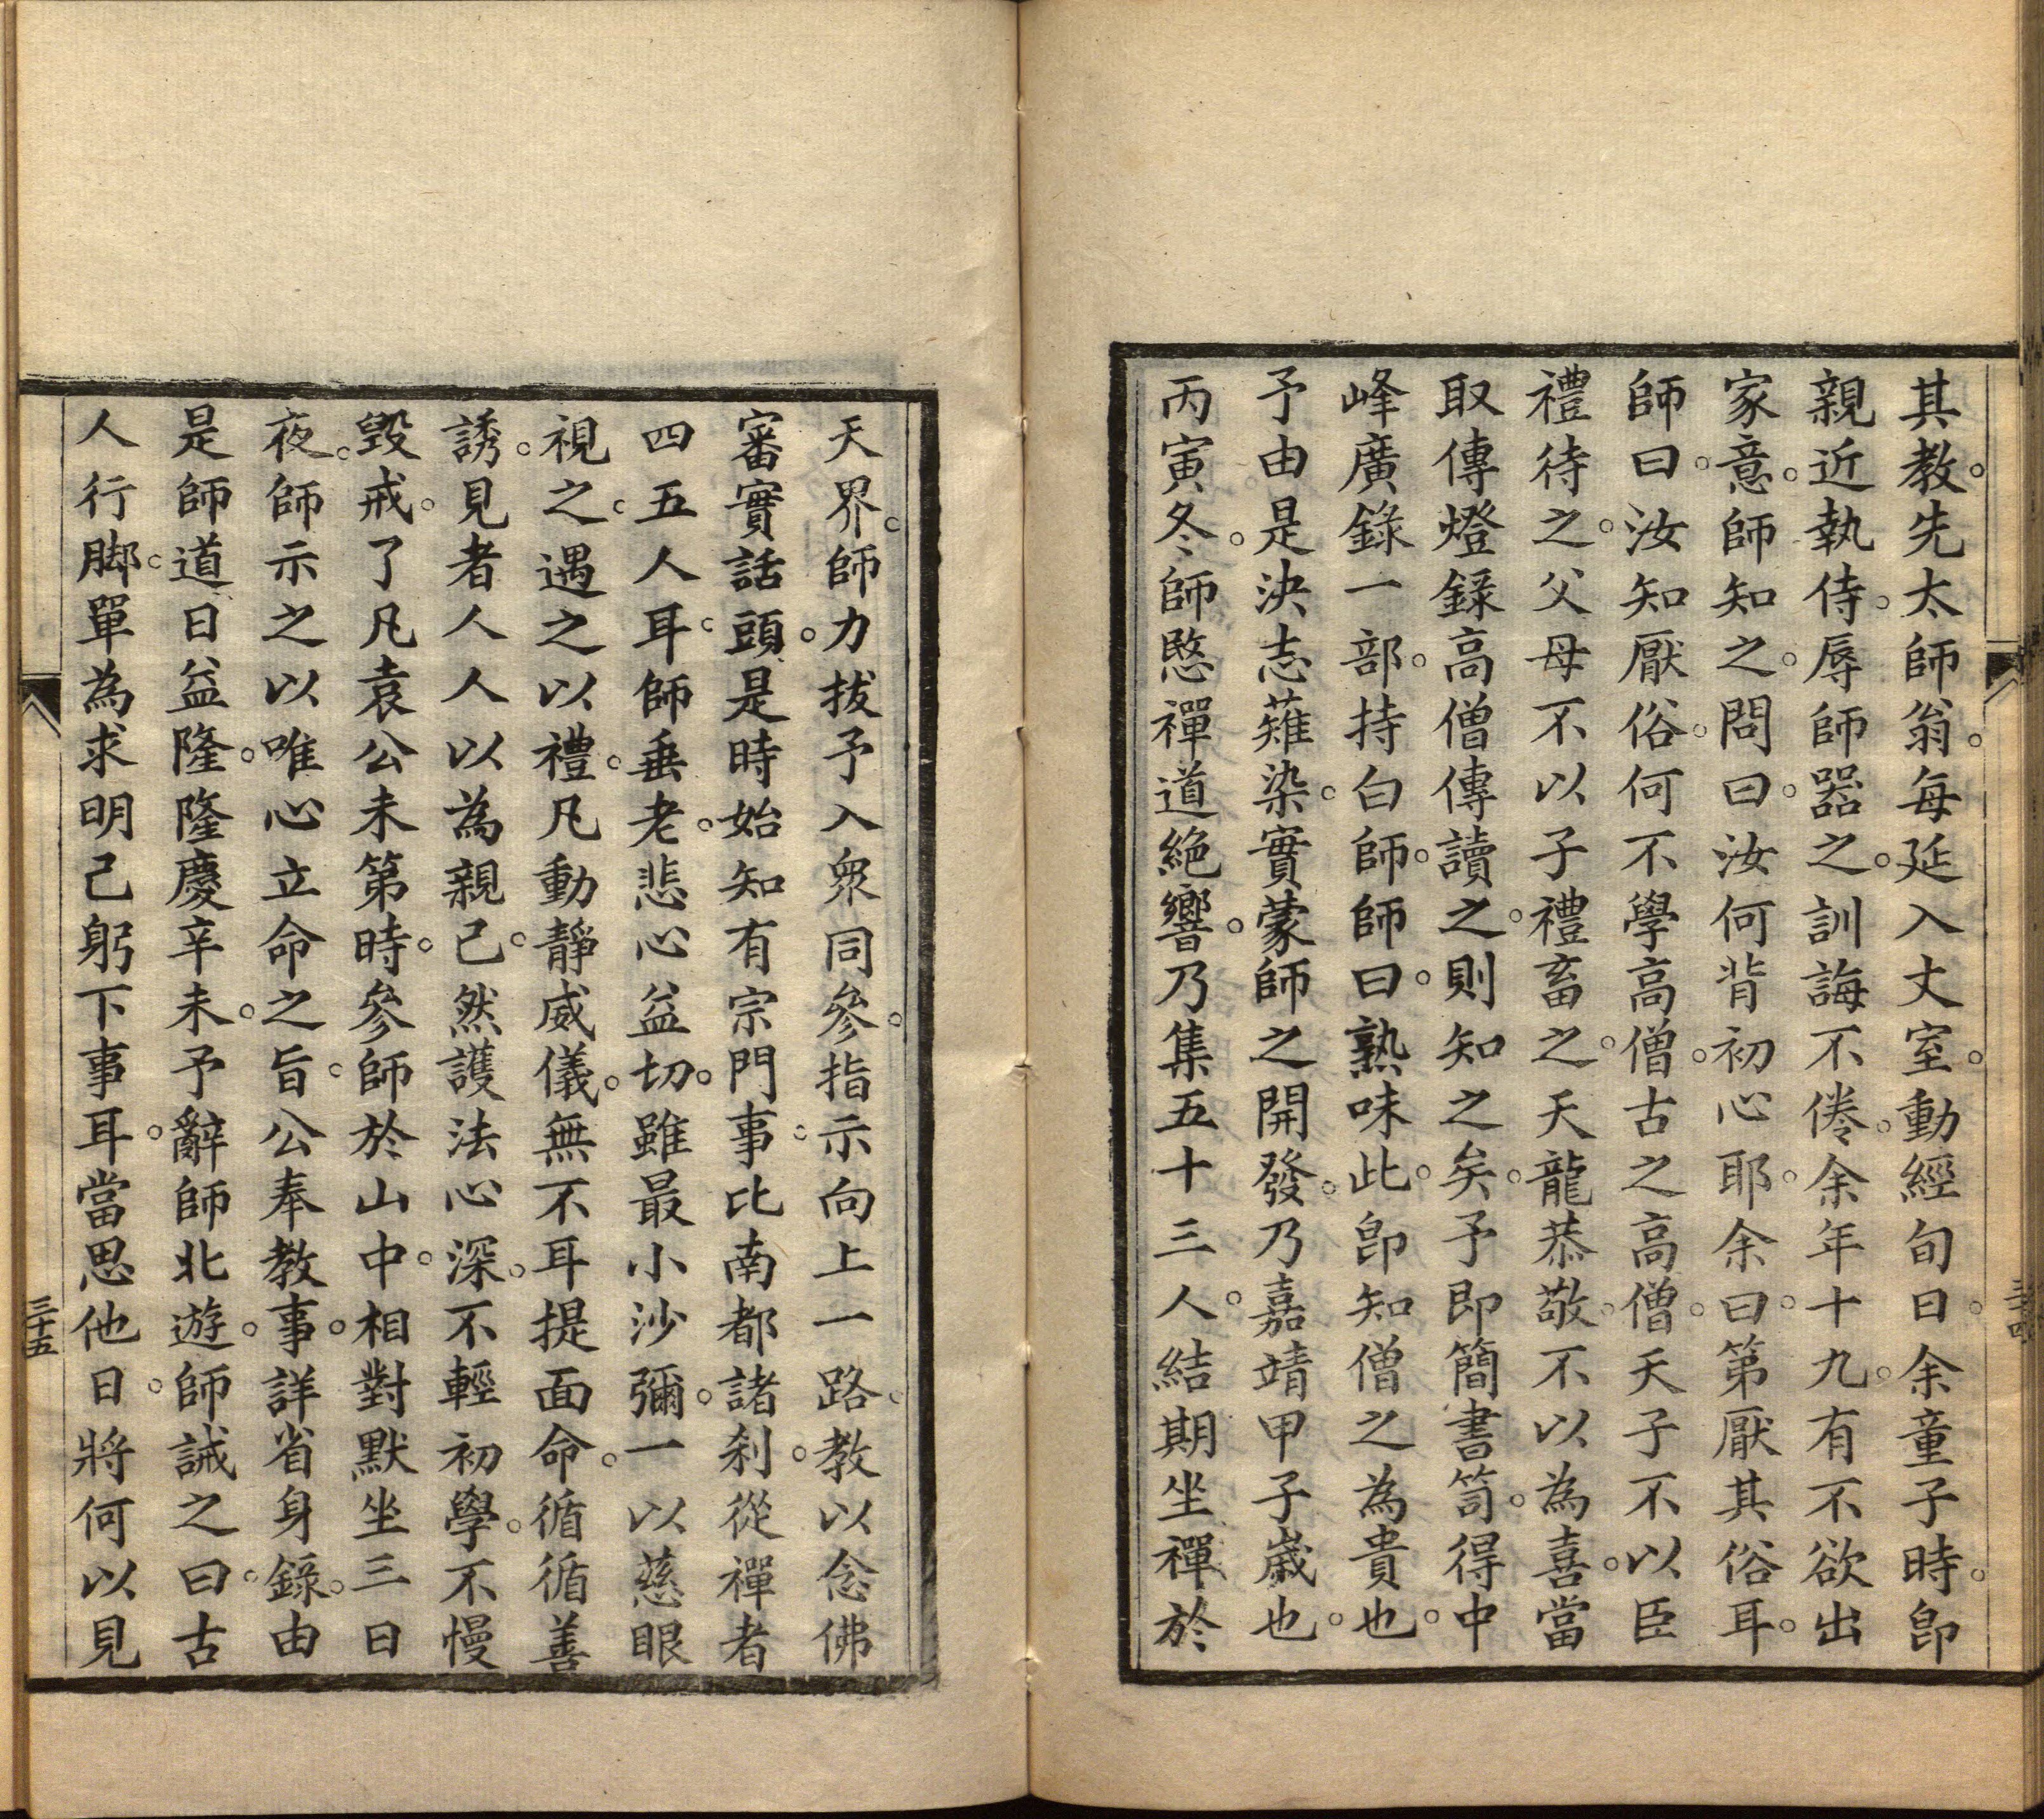 其教。先太師翁。每延入丈室。動經旬日。余童子時。卽
親近執侍。辱師器之。訓誨不倦。余年十九。有不欲出
家意。師知之。問曰。汝何背初心耶。余曰。第厭其俗耳。
師曰。汝知厭俗。何不學高僧。古之高僧。天子不以臣
禮待之。父母不以子禮畜之。天龍恭敬。不以為喜。當
取傳燈錄高僧傳讀之。則知之矣。予即簡書笥。得中
峰廣錄一部。持白師。師曰。熟味此。卽知僧之為貴也。
予由是決志薙染。實蒙師之開發。乃嘉靖甲子歲也。
丙寅冬。師愍禪道絕響。乃集五十三人。結期坐禪於
三十四
天界。師力拔予入衆同參。指示向上一路。教以念佛
審實話頭。是時始知有宗門事。比南都諸剎。從禪者
四五人耳。師垂老。悲心益切。雖最小沙彌。一以慈眼
視之。遇之以禮。凡動靜威儀。無不耳提面命。循循善
誘。見者人人以為親己。然護法心深。不輕初學。不慢
毀戒。了凡袁公未第時。參師於山中。相對默坐三日
夜。師示之以唯心立命之旨。公奉教事。詳省身錄。由
是師道日益隆。隆慶辛未。予辭師北遊。師誡之曰。古
人行脚。單為求明己躬下事耳。當思他日。將何以見
三十五